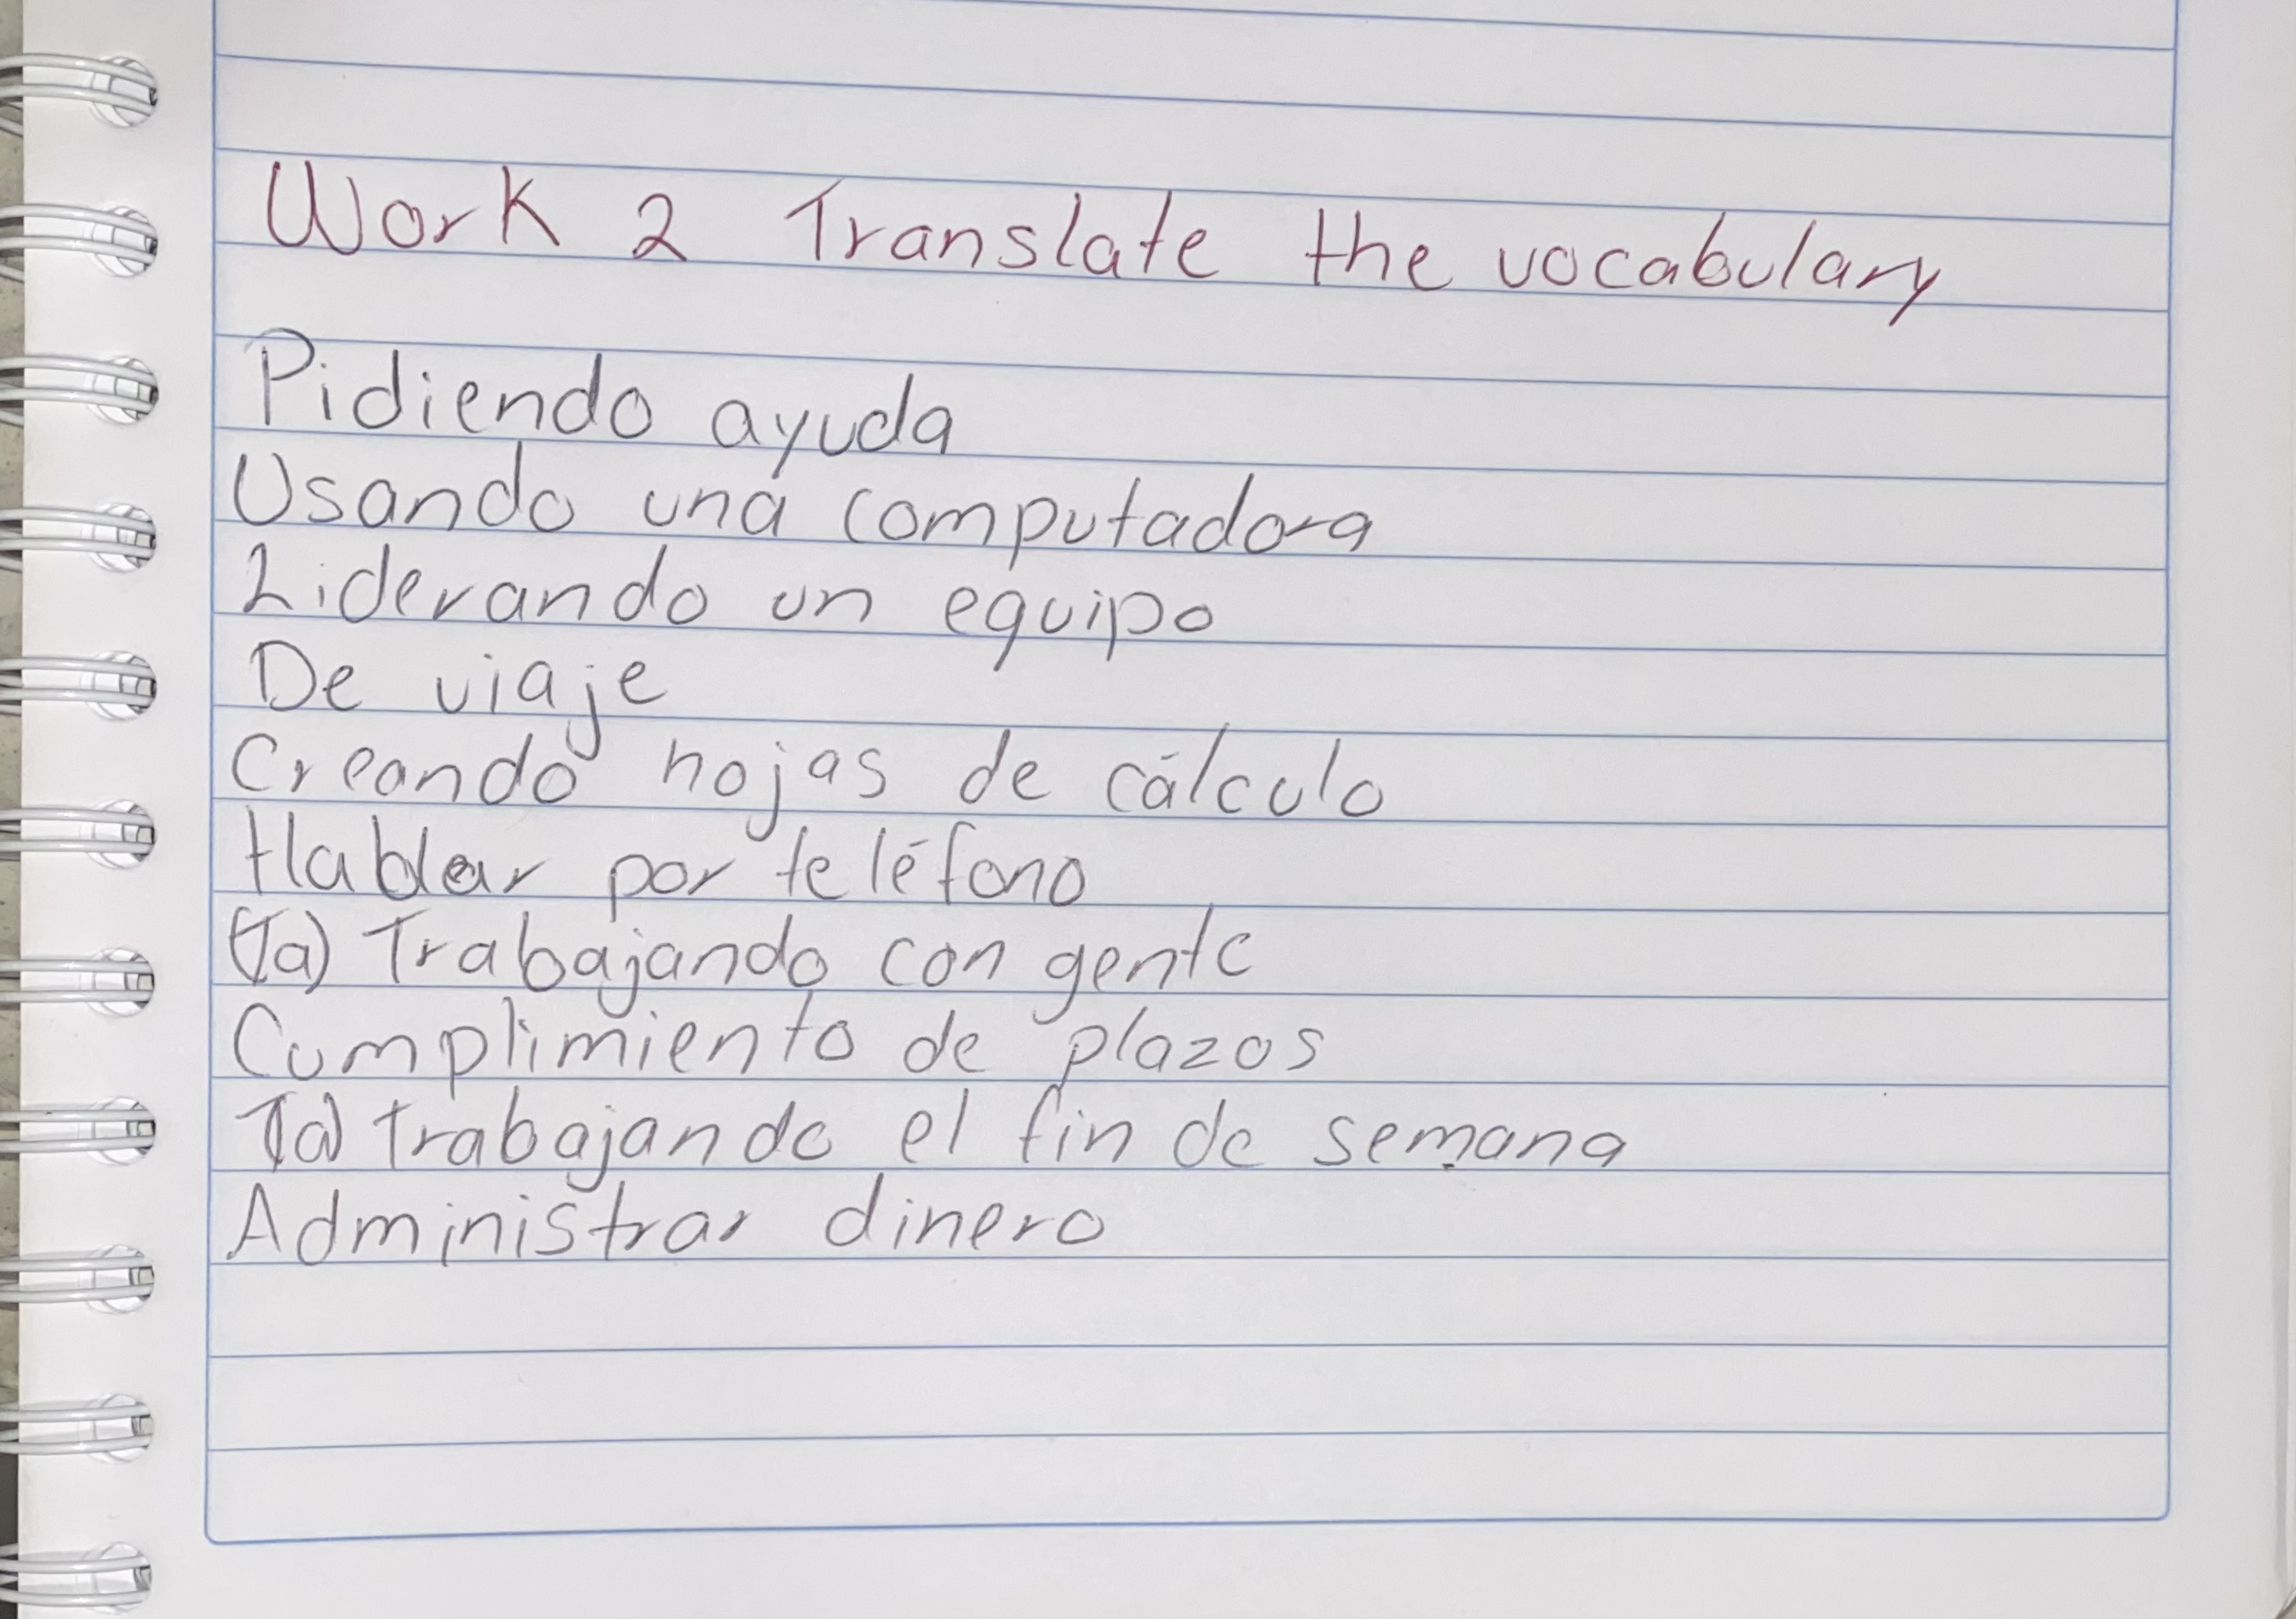 Work 2 Translate the vocabulary
Pidiendo ayuda
Usando una computadora
Liderando un equipo
De viaje
Creando hojas de cálculo
Hablar por teléfono
(Ta) Trabajando con gente
Cumplimiento de plazos
(Ta) Trabajando el fin de semana
Administrar dinero